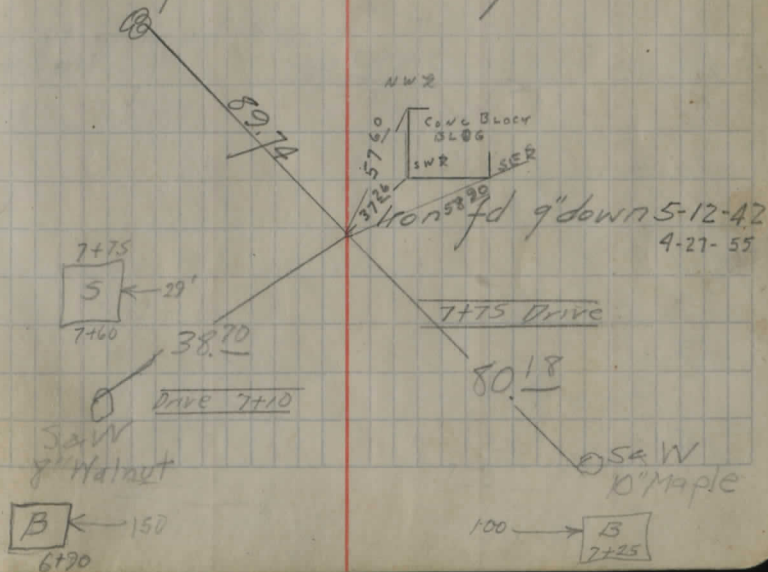 89.74
NWR
CONC BLOCK
BLDG
57 60
SWR
SER
37 26
58 90
Iron fd 9" down 5-12-42
4-27-55
7+75
S
29'
7+60
7+75 Drive
38.70
80.18
Drive 7+10
S&W
8" Walnut
S&W
10" Maple
B
150
6+90
100
B
7+25